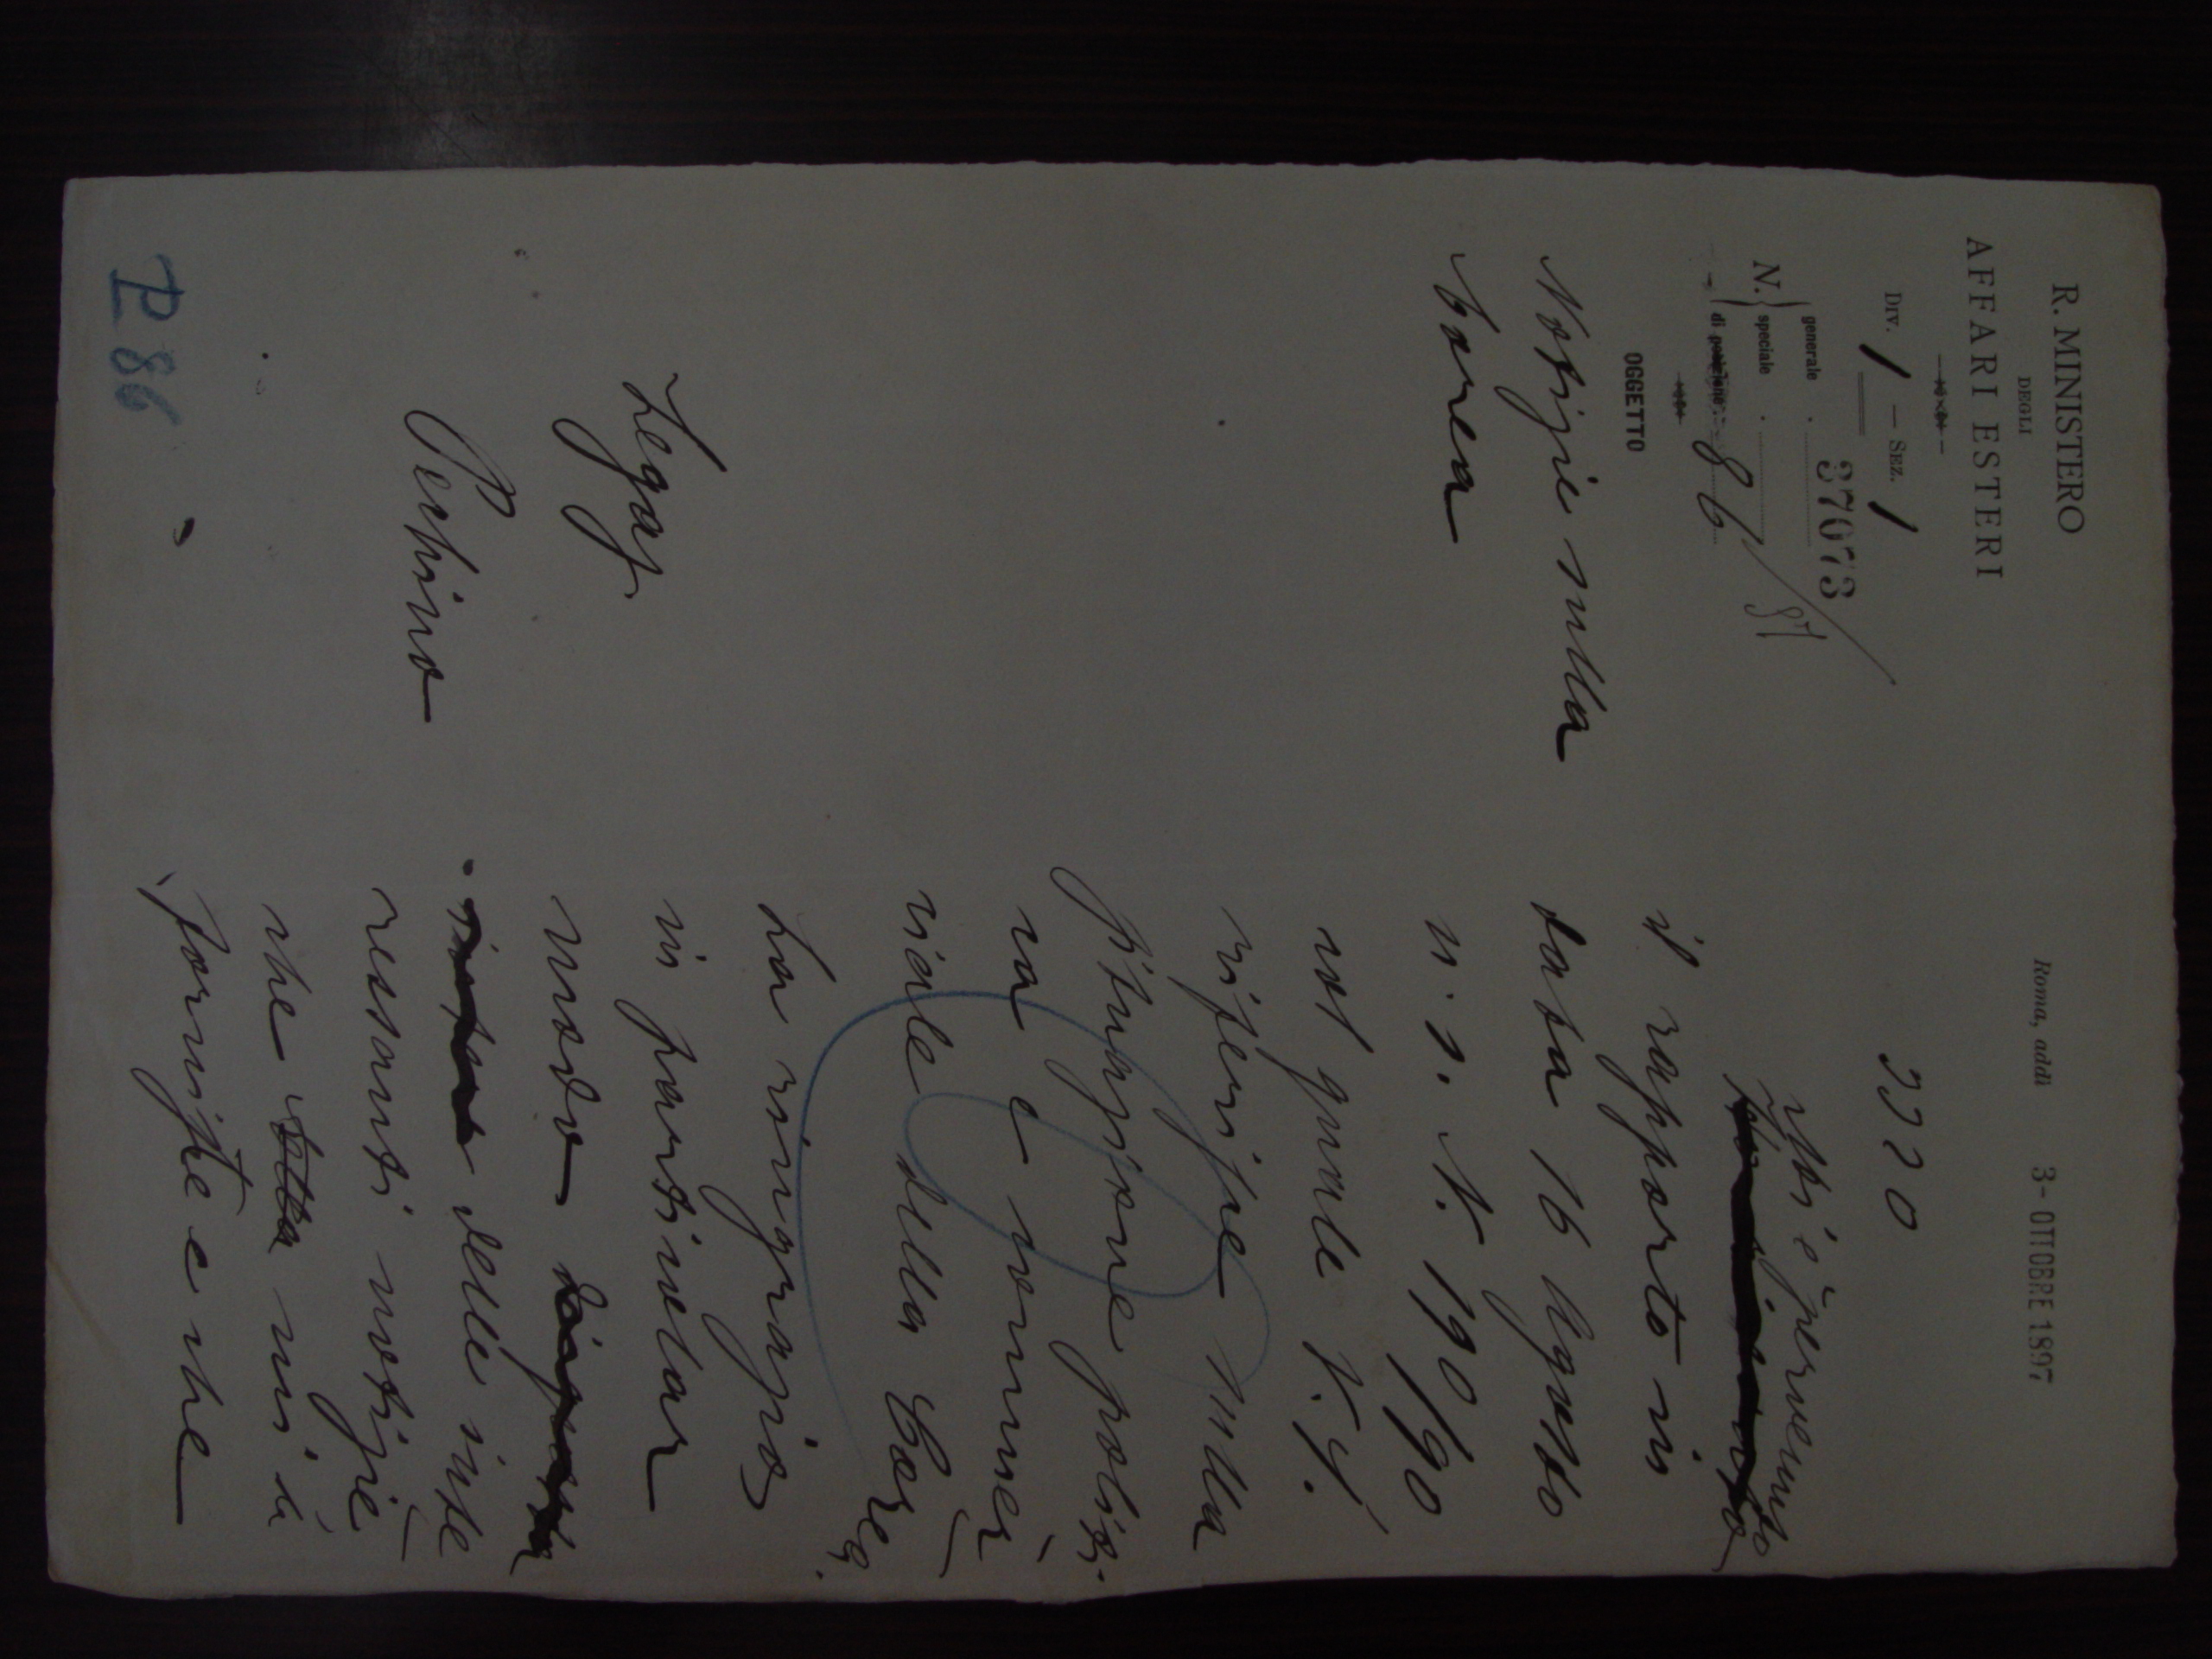 R. MINISTERO
DEGLI
AFFARI ESTERI
Div. 1 — Sez. 1
N. generale . 37073
speciale .
di posizione 86/97
OGGETTO
Notizie sulla
Corea
Legaz
Pechino
P 86
Roma, addì 3 - OTTOBRE 1897
Mi è pervenuto
il rapporto in
data 16 Agosto
u. s. N. 190/90
col quale V. S.
riferisce sulla
situazione politi-
ca e commer
ciale della Corea.
La ringrazio
in particolar
modo
delle inte
ressanti notizie
che mi à
fornite e che